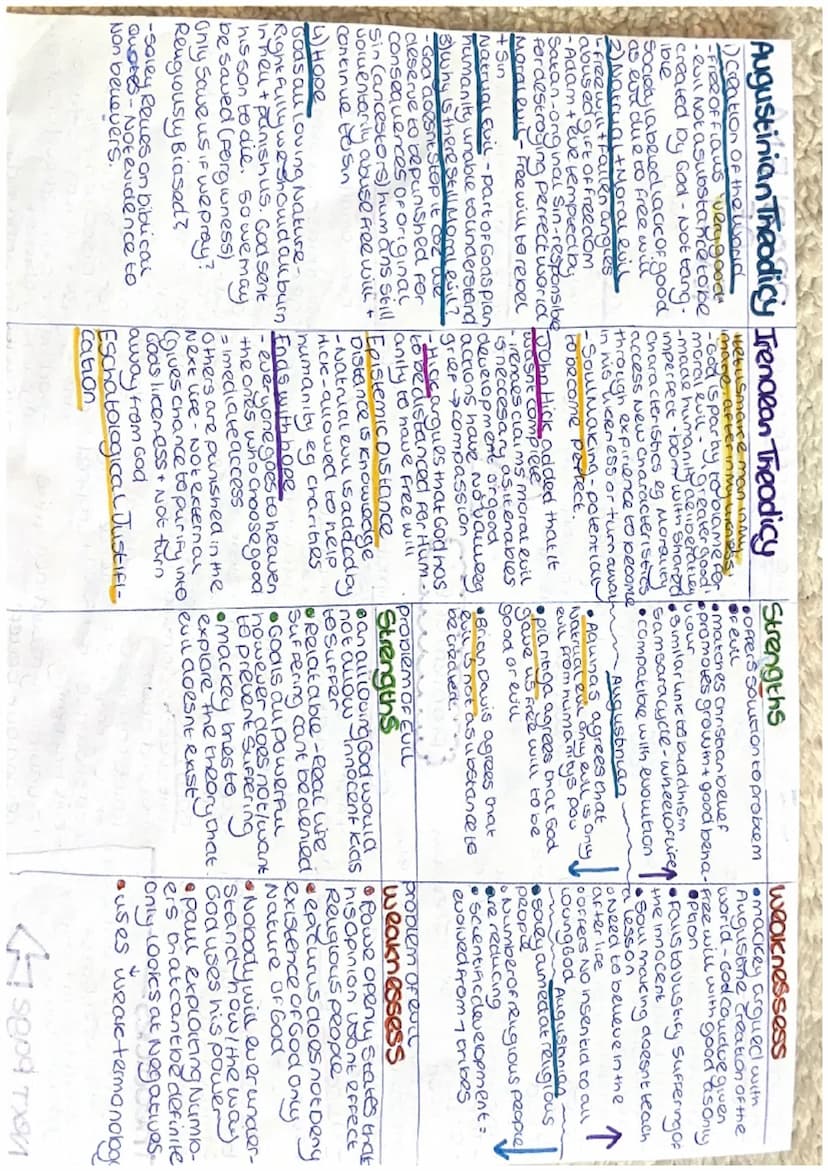 Augustinian Theodicy
1) Creation Of the World
- Free of flaws 'very good'
- evil Not a substance to be
created by God - Not tang-
ible
Society labeled lack of good
as evil due to free will
2) Natural + Moral evil
- Free will + fallen angles
abused gift of freedom
- Adam + eve tempted by
Satan - original Sin - responsible
for destroying perfect world
Moral evil - Free will to rebel
+ Sin
Natural evil - part of Gods plan
humanity unable to understand
3) Why is there still Moral evil?
- God doesn't stop it as we
deserve to be punished for
consequences of original
Sin (ancestors) humans still
voluentarily abuse free will +
continue to sin
4) Hope
Gods all loving Nature -
Rightfully we should all burn
in hell + punish us. God sent
his son to die. So we may
be saved (forgivness)
Only save us if we pray?
Religiously Biased?
- Soley Relies on Biblical
quotes - Not evidence to
Non believers.
Irenaean Theodicy
'let us make man in my
image, after my likeness'
- God is partly to blame for
moral evil - 'greater good'
- made humanity deliberatley
imperfect - born with shared
characteristics eg Morality
access new characteristics
through exp irience to become
in his likeness or turn away
- Soul Making - potential
to become perfect
John Hick added that it
wasn't complete
- iremaes claims moral evil
is neccesary as it enables
development of good
actions have No value eg
grief → compassion
- Hick argues that God has
to be distanced for Hum-
anity to have free will
Epistemic Distance
Distance is knowledge
- Natural evil is added by
Hick - allowed to help
humanity eg charities
Ends with hope
- everyone goes to heaven
the ones who choose good
= imediate access
Others are punished in the
Next life - Not external
(gives chance to purify into
Gods liceness + Not turn
away from God
Eschatological Justifi-
cation
Strengths
• offers solution to problem
of evil
• matches christian belief
• promotes growth + good beha-
viour
• Similar link to buddhism
Samsara cycle - wheel of life
• compatible with evolution
Augustinian
• Aquinas agrees that
Natural evil only evil is only
from humanitys POV
• Plantinga agrees that God
gave us free will to be
good or evil
• Brian Davis agrees that
evil is not a substance is
between
problem of evil
Strengths
• an all loving God would
not allow innocent kids
to suffer
• Relatable - Real life
suffering can't be denied
• God is all powerful
however does not/want
to prevent suffering
• mackey tries to
explore the theory that
evil doesnt exist
Weaknessess
• mackey argued with
Augustine creation of the
world - God could've given
free will with good as only
option
• Fails to justify suffering of
the innocent
• Soul making doesn't teach
a lesson
• Need to believe in the
after life
• offers No insentid to all
loving God
Augustinian
• Soley aimed at religious
people
• Number of religious people
are reducing
• Scientific development =
evolved from 7 tribes
problem of evil
Weaknessess
• Rowe openly states that
his opinion won't effect
Religious people
• epicurus does not deny
existence of God only
Nature of God
• Nobody will ever under-
stand how/the way
God uses his power
• paul exploring Numb-
ers that can't be definite
only looks at Negatives
• uses weak termanology